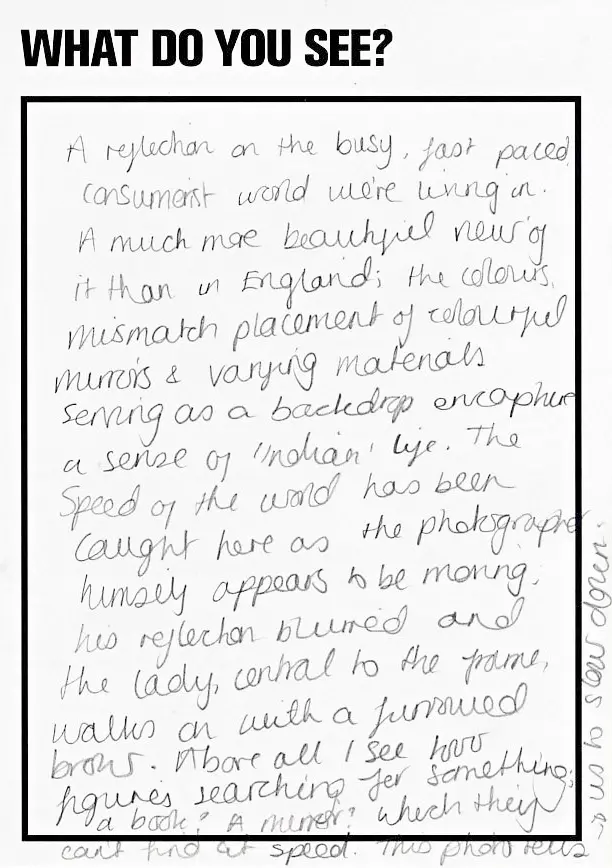 WHAT DO YOU SEE?
A reflection on the busy, fast paced
consumerist world we're living in.
A much more beautiful view of
it than in England; the colours,
mismatch placement of colourful
mirrors & varying materials
serving as a backdrop encapture
a sense of 'Indian' life. The
speed of the world has been
caught here as the photographer
himself appears to be moving;
his reflection blurred and
the lady, central to the frame,
walks on with a furrowed
brow. Above all I see two
figures searching for something;
a book? A mirror? which they
can't find at speed. This photo tells
→ us to slow down.